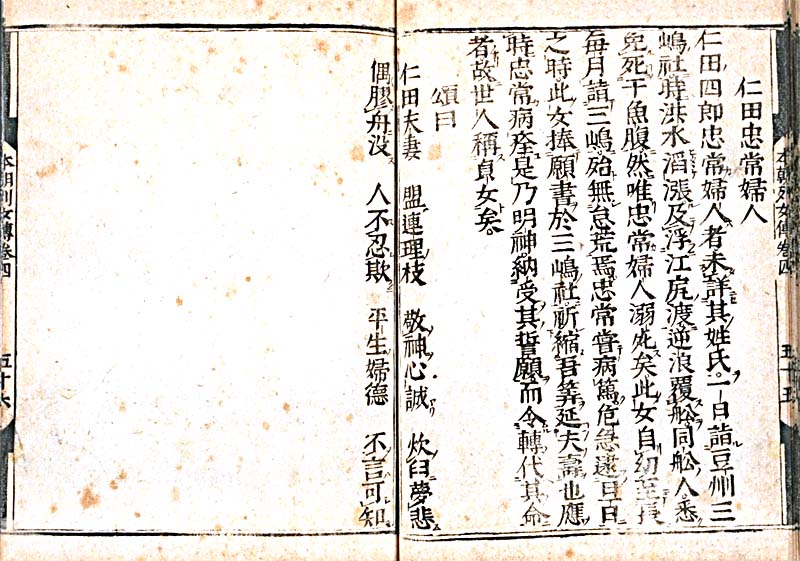 仁田忠常婦人
仁田四郎忠常婦人者未詳其姓氏一日詣豆州三
嶋社時洪水滔漲及浮江尻渡逆浪覆舩同舩人悉
免死于魚腹然唯忠常婦人溺死矣此女自幼至長
毎月詣三嶋殆無怠荒焉忠常嘗病篤危急逮旦日
之時此女捧願書於三嶋社祈縮吾筭延夫壽也應
時忠常病痊是乃明神納受其誓願而令轉代其命
者故世人稱貞女矣
頌曰
仁田夫妻 盟連理枝 敬神心誠 炊臼夢悲
偶膠舟没 人不忍欺 平生婦德 不言可知
本朝列女傳卷四 五十五
本朝列女傳卷四 五十六